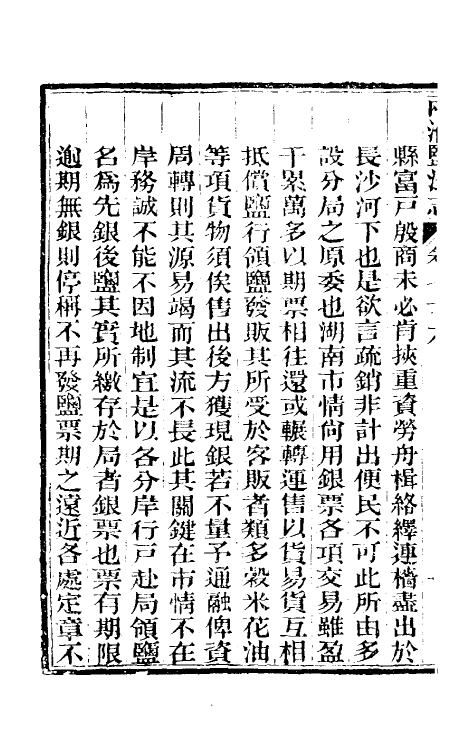 縣富戸殷商未必肯挾重資勞舟楫絡繹連檣盡出於
長沙河下也是欲言疏銷非計出便民不可此所由多
設分局之原委也湖南市情向用銀票各項交易雖盈
千累萬多以期票相往還或輾轉運售以貨易貨互相
抵償鹽行領鹽發販其所受於客販者類多穀米花油
等項貨物須俟售出後方獲現銀若不量予通融俾資
周轉則其源易竭而其流不長此其關鍵在市情不在
岸務誠不能不因地制宜是以各分岸行戸赴局領鹽
名爲先銀後鹽其實所繳存於局者銀票也票有期限
逾期無銀則停稱不再發鹽票期之遠近各處定章不